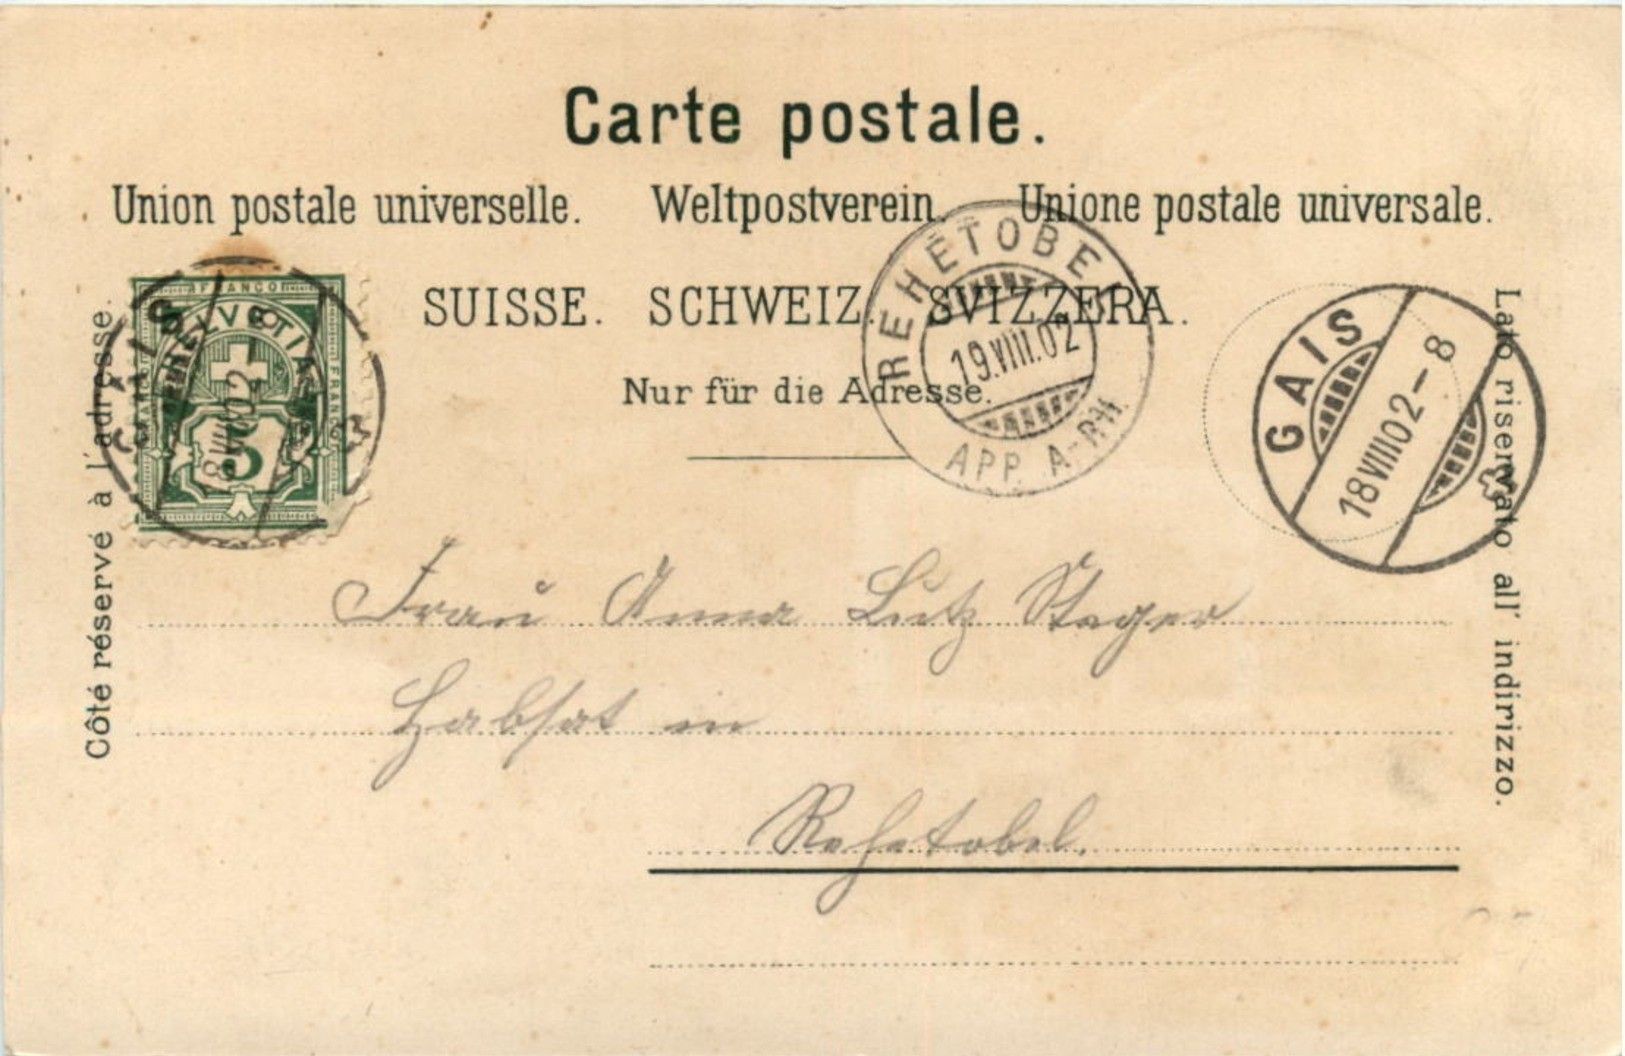 Carte postale.
Union postale universelle. Weltpostverein. Unione postale universale.
SUISSE. SCHWEIZ. SVIZZERA.
Nur für die Adresse.
Côté réservé à l'adresse.
Lato riservato all' indirizzo.
FRANCO
FRANCO
HELVETIA
5
GAIS
18.VIII.02-
REHETOBEL
19.VIII.02
APP. A-RH.
GAIS
18.VIII.02-8
Frau Anna Lutz Steger
Habsat in
Rehetobel.